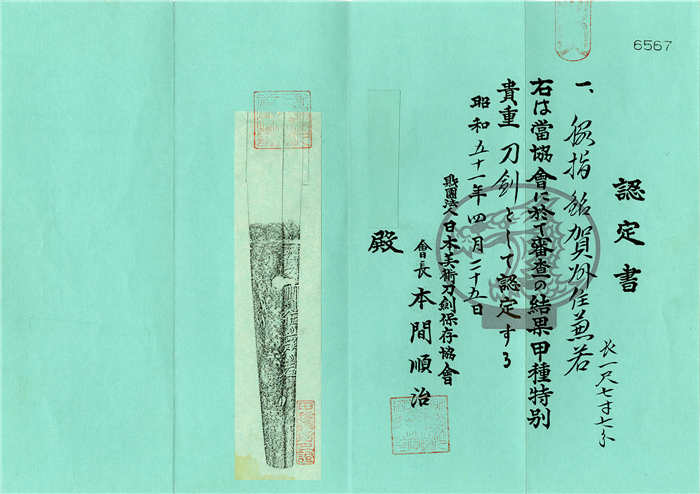 6567
認定書
一、脇指 銘 賀州住兼若
長一尺七寸七分
右は當協會に於て審査の結果甲種特別
貴重刀剣として認定する
昭和五十一年四月二十五日
財團法人日本美術刀剣保存協會
會長 本間順治
殿